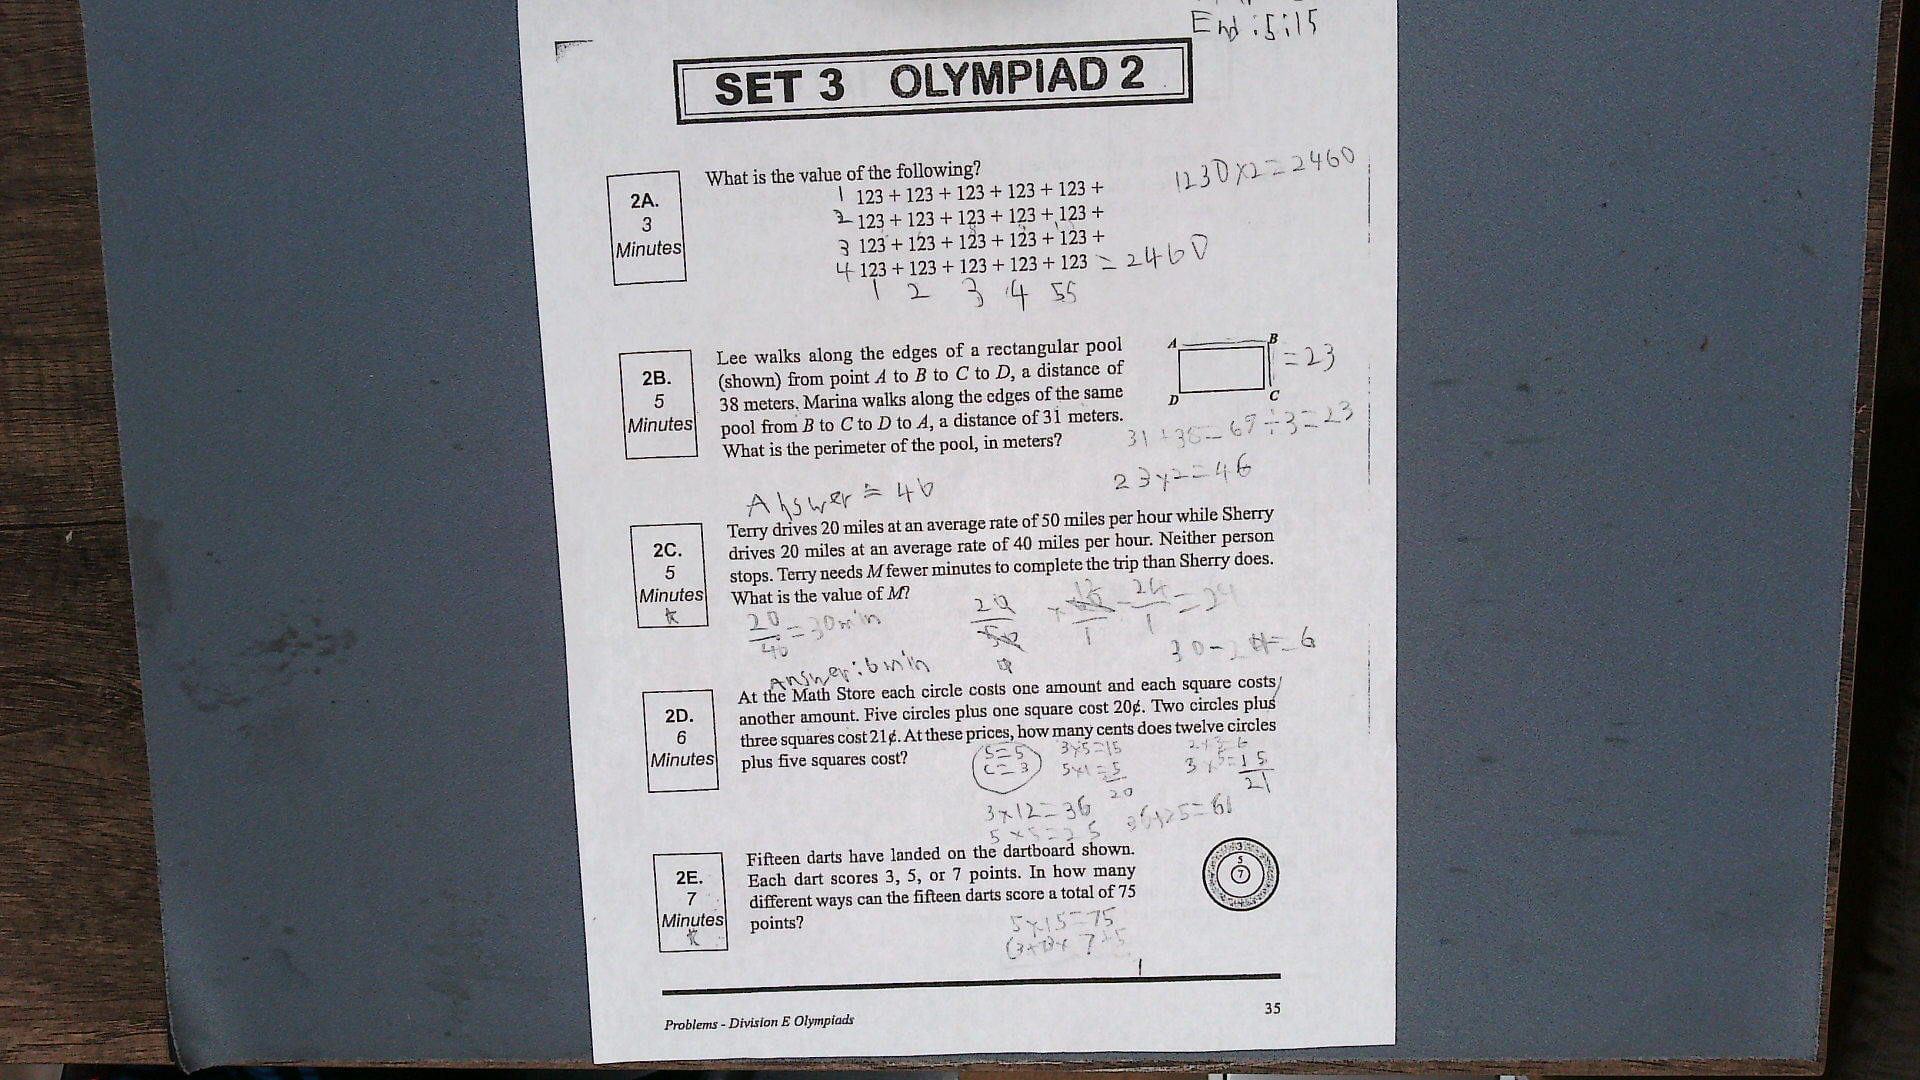 End :5:15
SET 3 OLYMPIAD 2
2A.
3
Minutes
What is the value of the following?
1 123 + 123 + 123 + 123 + 123 +
2 123 + 123 + 123 + 123 + 123 +
3 123 + 123 + 123 + 123 + 123 +
4 123 + 123 + 123 + 123 + 123 = 2460
1 2 3 4 55
1230x2=2460
2B.
5
Minutes
Lee walks along the edges of a rectangular pool
(shown) from point A to B to C to D, a distance of
38 meters. Marina walks along the edges of the same
pool from B to C to D to A, a distance of 31 meters.
What is the perimeter of the pool, in meters?
A B
D C
=23
31+38=69÷3=23
23x2=46
Answer = 46
2C.
5
Minutes
Terry drives 20 miles at an average rate of 50 miles per hour while Sherry
drives 20 miles at an average rate of 40 miles per hour. Neither person
stops. Terry needs M fewer minutes to complete the trip than Sherry does.
What is the value of M?
20
40 =30min
24
1
30-24=6
Answer:6min
2D.
6
Minutes
At the Math Store each circle costs one amount and each square costs
another amount. Five circles plus one square cost 20¢. Two circles plus
three squares cost 21¢. At these prices, how many cents does twelve circles
plus five squares cost?
S=5
C=3
3x5=15
5x1=5
20
2x3=6
3x5=15
21
3x12=36
5x5=25
36+25=61
2E.
7
Minutes
Fifteen darts have landed on the dartboard shown.
Each dart scores 3, 5, or 7 points. In how many
different ways can the fifteen darts score a total of 75
points?
3
5
7
5x15=75
Problems - Division E Olympiads
35